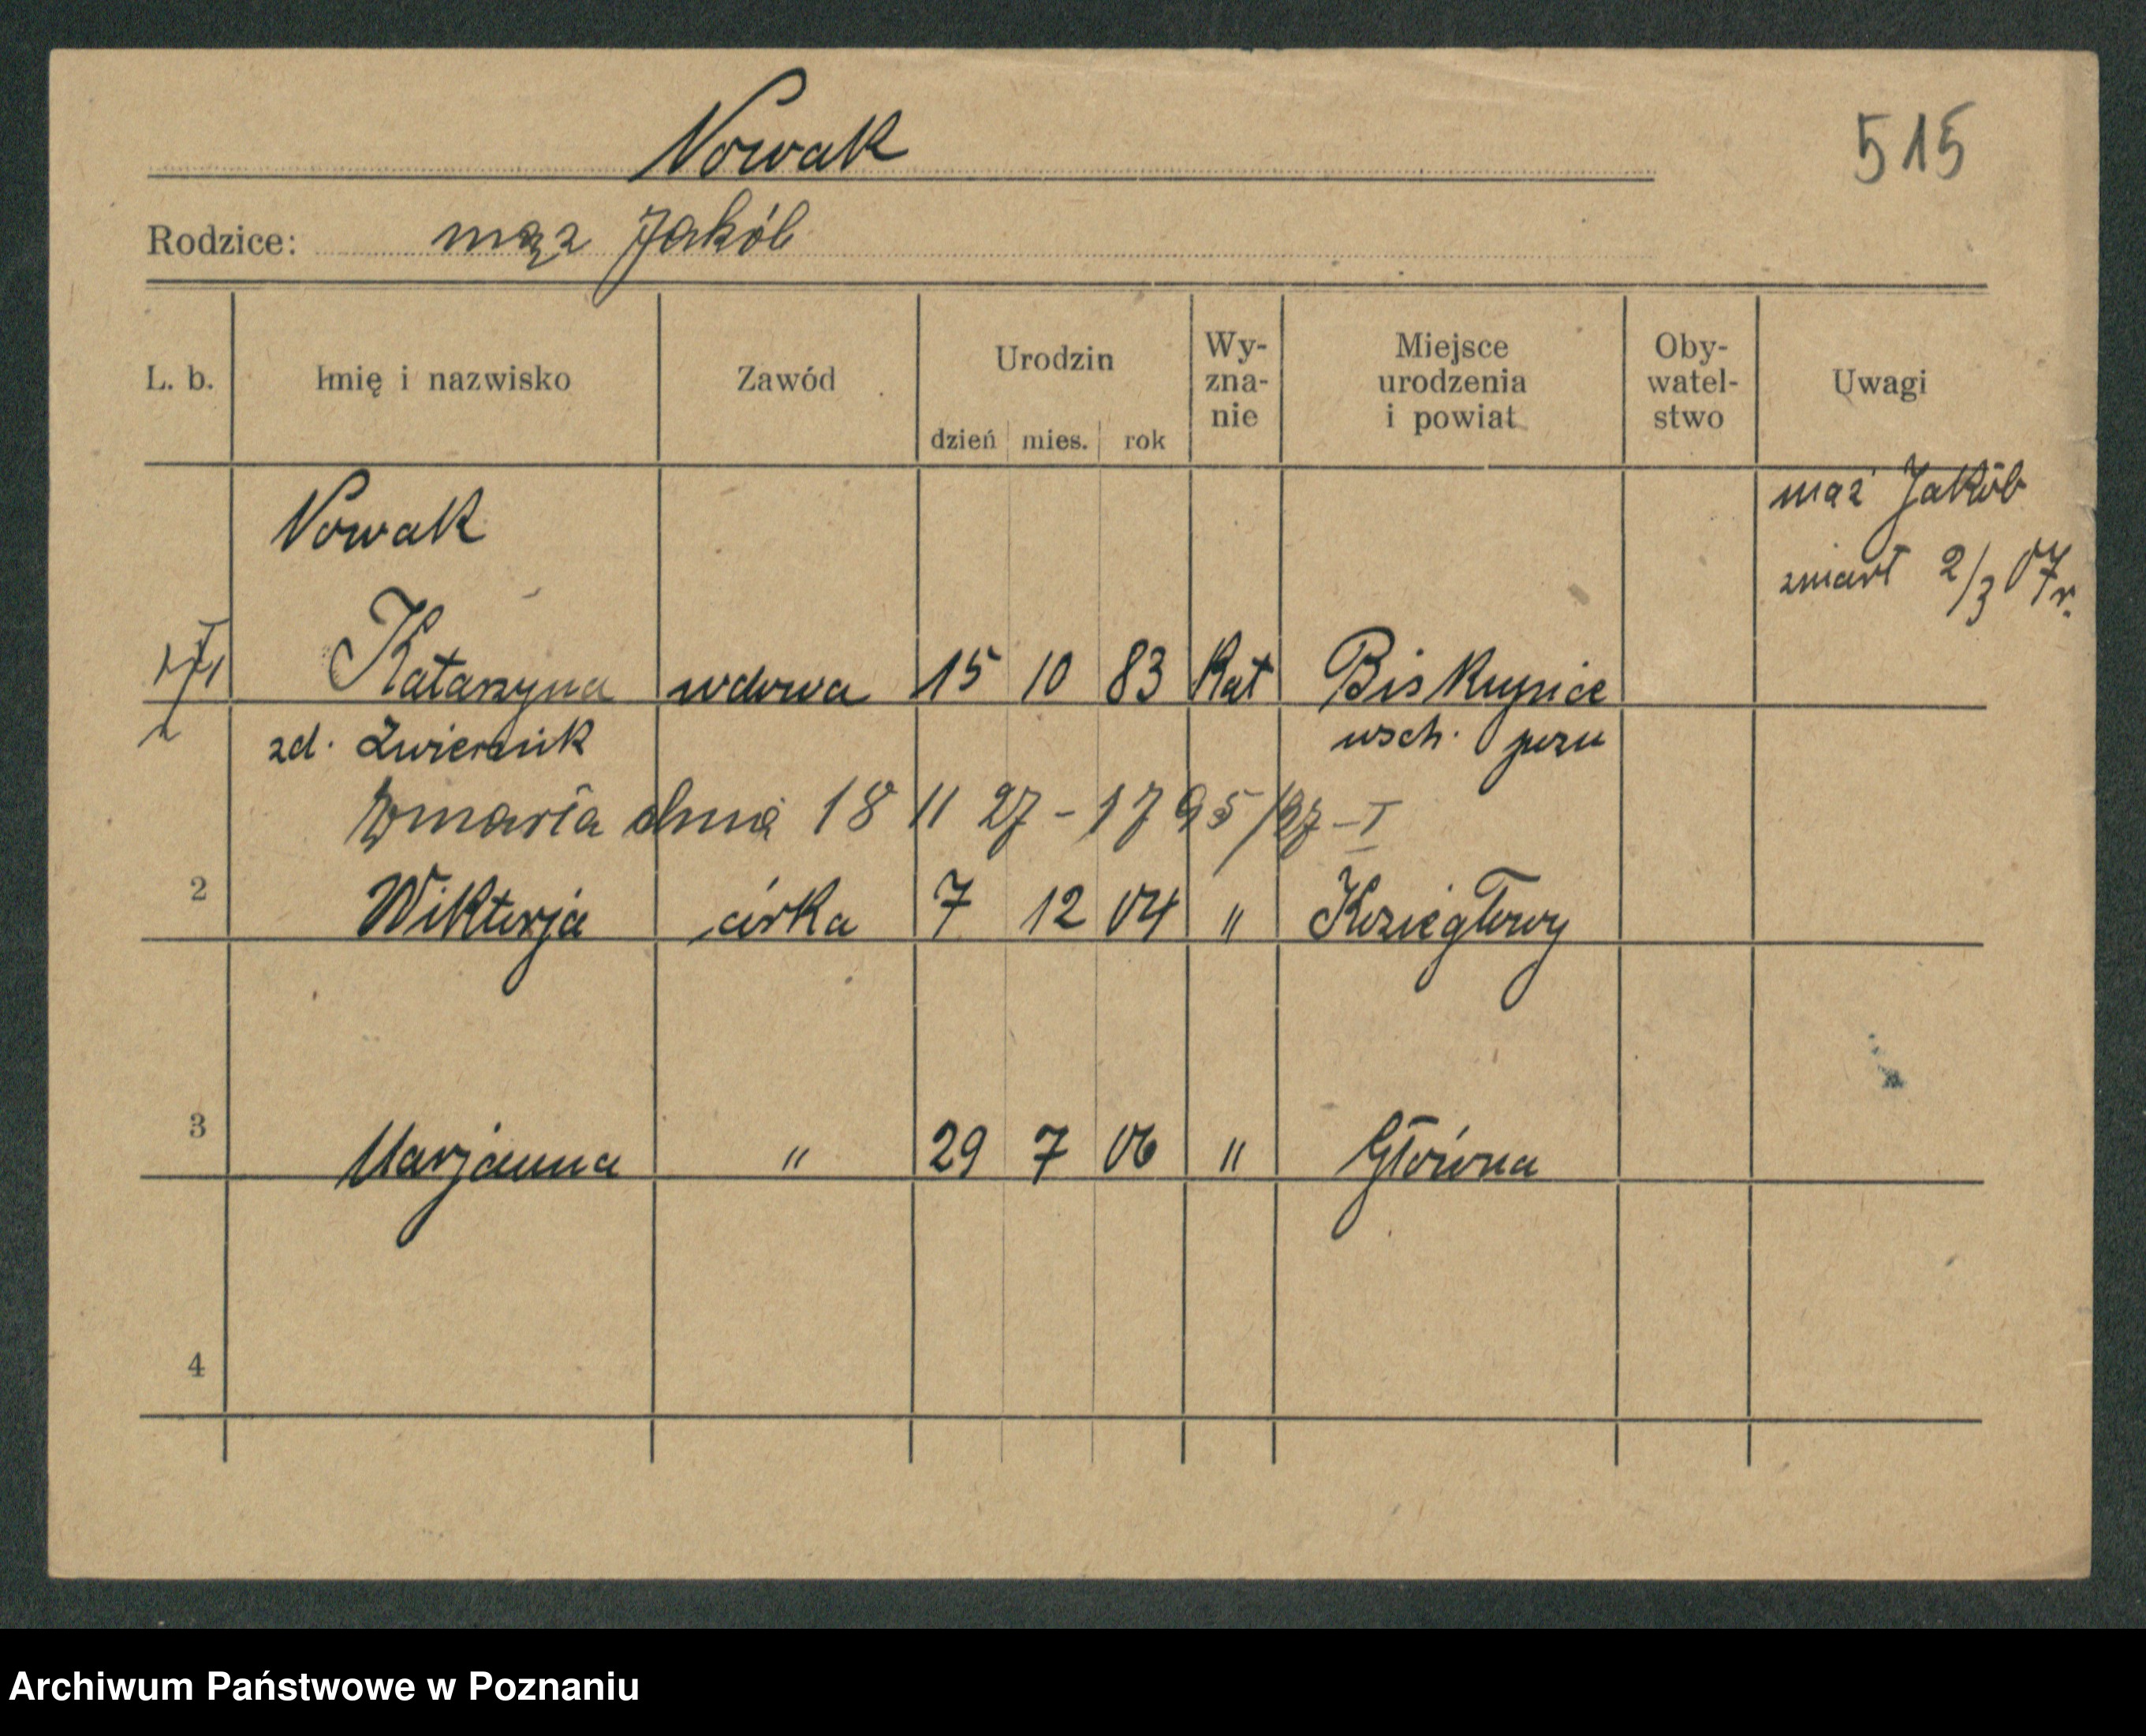 Nowak
515
Rodzice: mąż Jakób
L. b. Imię i nazwisko Zawód Urodzin dzień mies. rok Wy-zna-nie Miejsce urodzenia i powiat Oby-watel-stwo Uwagi
Nowak mąż Jakób
zmarł 2/3 07 r.
1 Katarzyna wdowa 15 10 83 Kat Biskupice
zd. Zwiernik wsch. pozn
Zmarła dnia 18 11 27 - 1795/27 - I
2 Wiktorja córka 7 12 04 " Koziegłowy
3 Marjanna " 29 7 06 " Główna
4
Archiwum Państwowe w Poznaniu